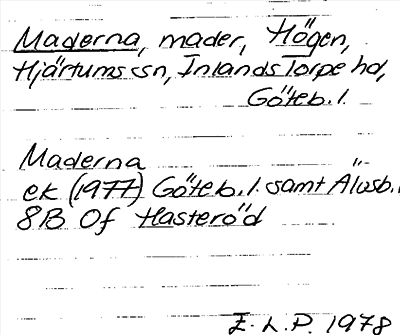 Maderna, mader, Högen,
Hjärtums sn, Inlands Torpe hd,
Göteb. l.
Maderna
ek (1977) Göteb. l. samt Älvsb. l
8B 0f Hasteröd
E. L. P. 1978